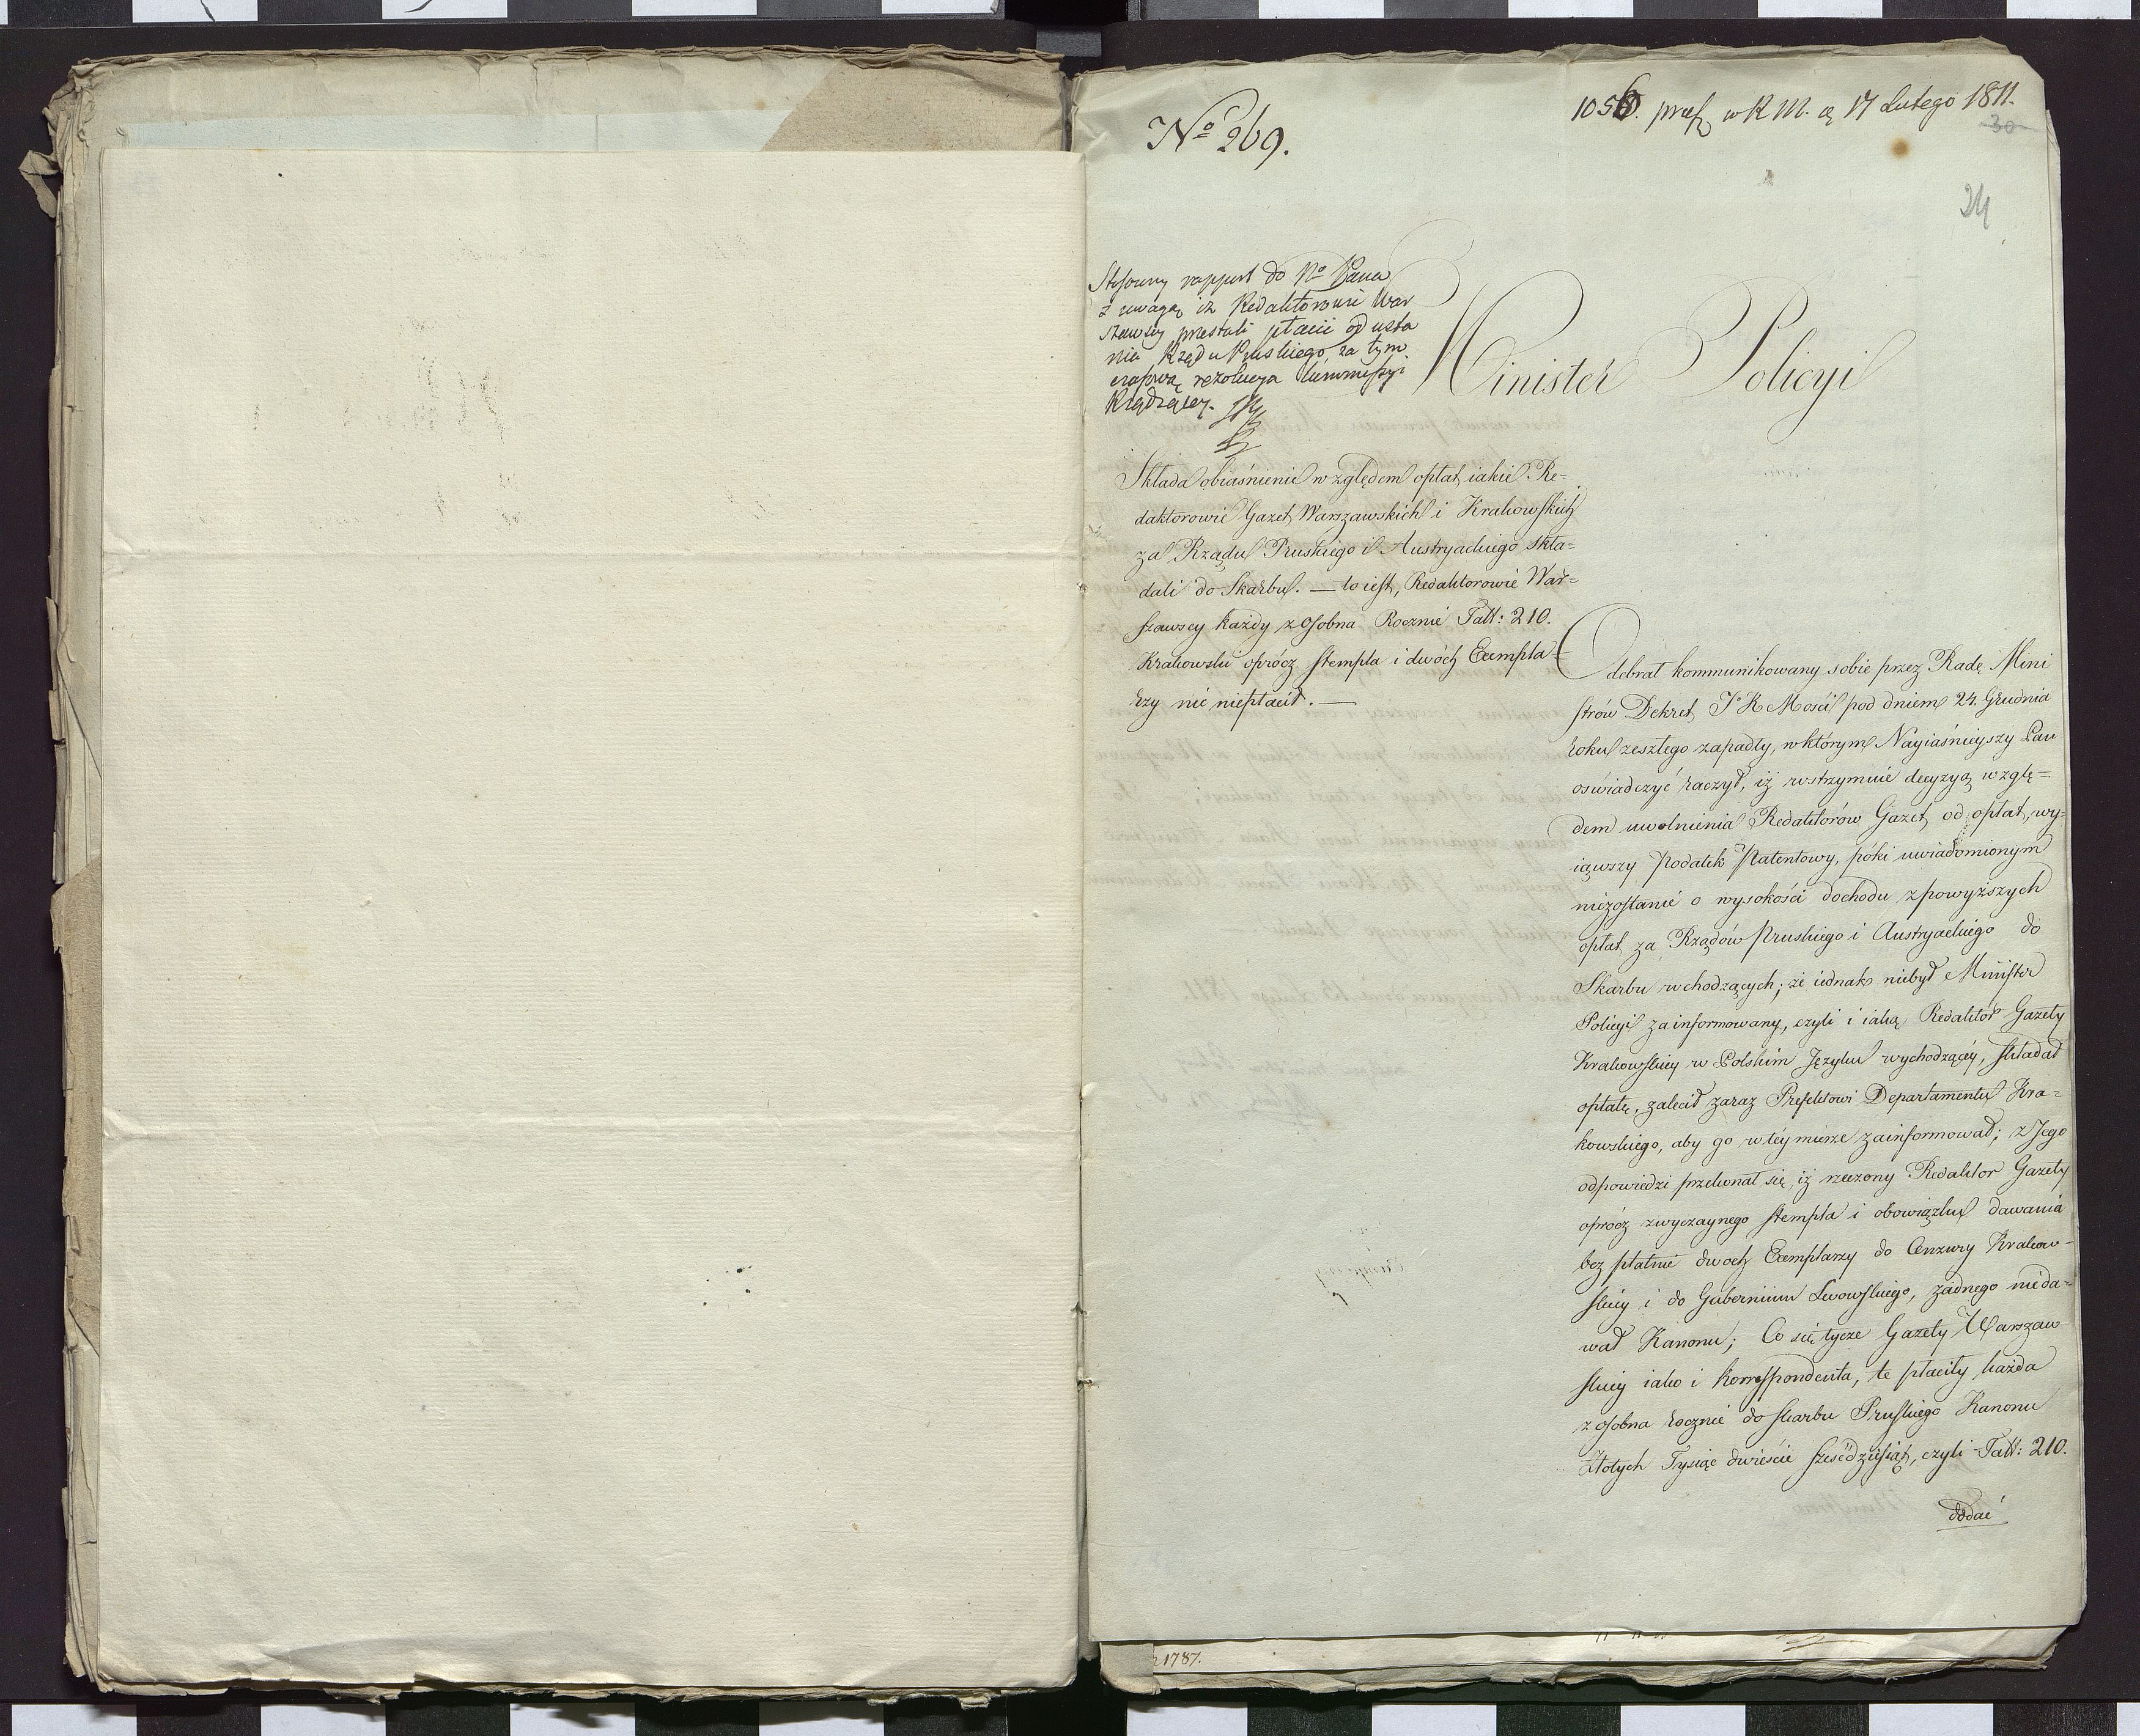 No 269.
1056. praes. w R M. d. 17 Lutego 1811.
30
24
Stosowny rapport do No Pana
z uwagą iż Redaktorowie War
szawscy przestali płacić od usta
nia Rządu Pruskiego, za tym
czasową rezolucyą Kommissyi
Rządzącey.
Minister Policyi
Składa obiaśnienie względem opłat iakie Re=
daktorowie Gazet Warszawskich i Krakowskich
za Rządu Pruskiego i Austryackiego skła=
dali do Skarbu. — to iest, Redaktorowie War=
szawscy każdy z osobna Rocznie Tall: 210.
Krakowski oprócz stempla i dwóch Exempla=
rzy nic niepłacił. —
Odebrał kommunikowany sobie przez Radę Mini
strów Dekret J K Mości pod dniem 24. Grudnia
roku zeszłego zapadły, w którym Nayiaśnieyszy Pan
oświadczyć raczył, iż wstrzymuie decyzyą wzglę=
dem uwolnienia Redaktorów Gazet od opłat, wy=
iąwszy Podatek Patentowy, póki uwiadomionym
niezostanie o wysokości dochodu z powyższych
opłat za Rządów Pruskiego i Austryackiego do
Skarbu wchodzących; że iednak niebył Minister
Policyi zainformowany, czyli i iaką Redaktor Gazety
Krakowskiey w Polskim Języku wychodzącéy, składał
opłatę, zalecił zaraz Prefektowi Departamentu Kra=
kowskiego, aby go w téy mierze zainformował; z Jego
odpowiedzi przekonał się, iż rzeczony Redaktor Gazety
oprócz zwyczaynego stempla i obowiązku dawania
bez płatnie dwoch Exemplarzy do Cenzury Krakow=
skiey i do Gubernium Lwowskiego, żadnego nieda=
wał Kanonu; Co się tycze Gazety Warszaw
skiey iako i Korrespondenta, te płaciły każda
z osobna rocznie do skarbu Pruskiego Kanonu
Złotych Tysiąc dwieście sześćdziesiąt, czyli Tall: 210.
dodać
1787.